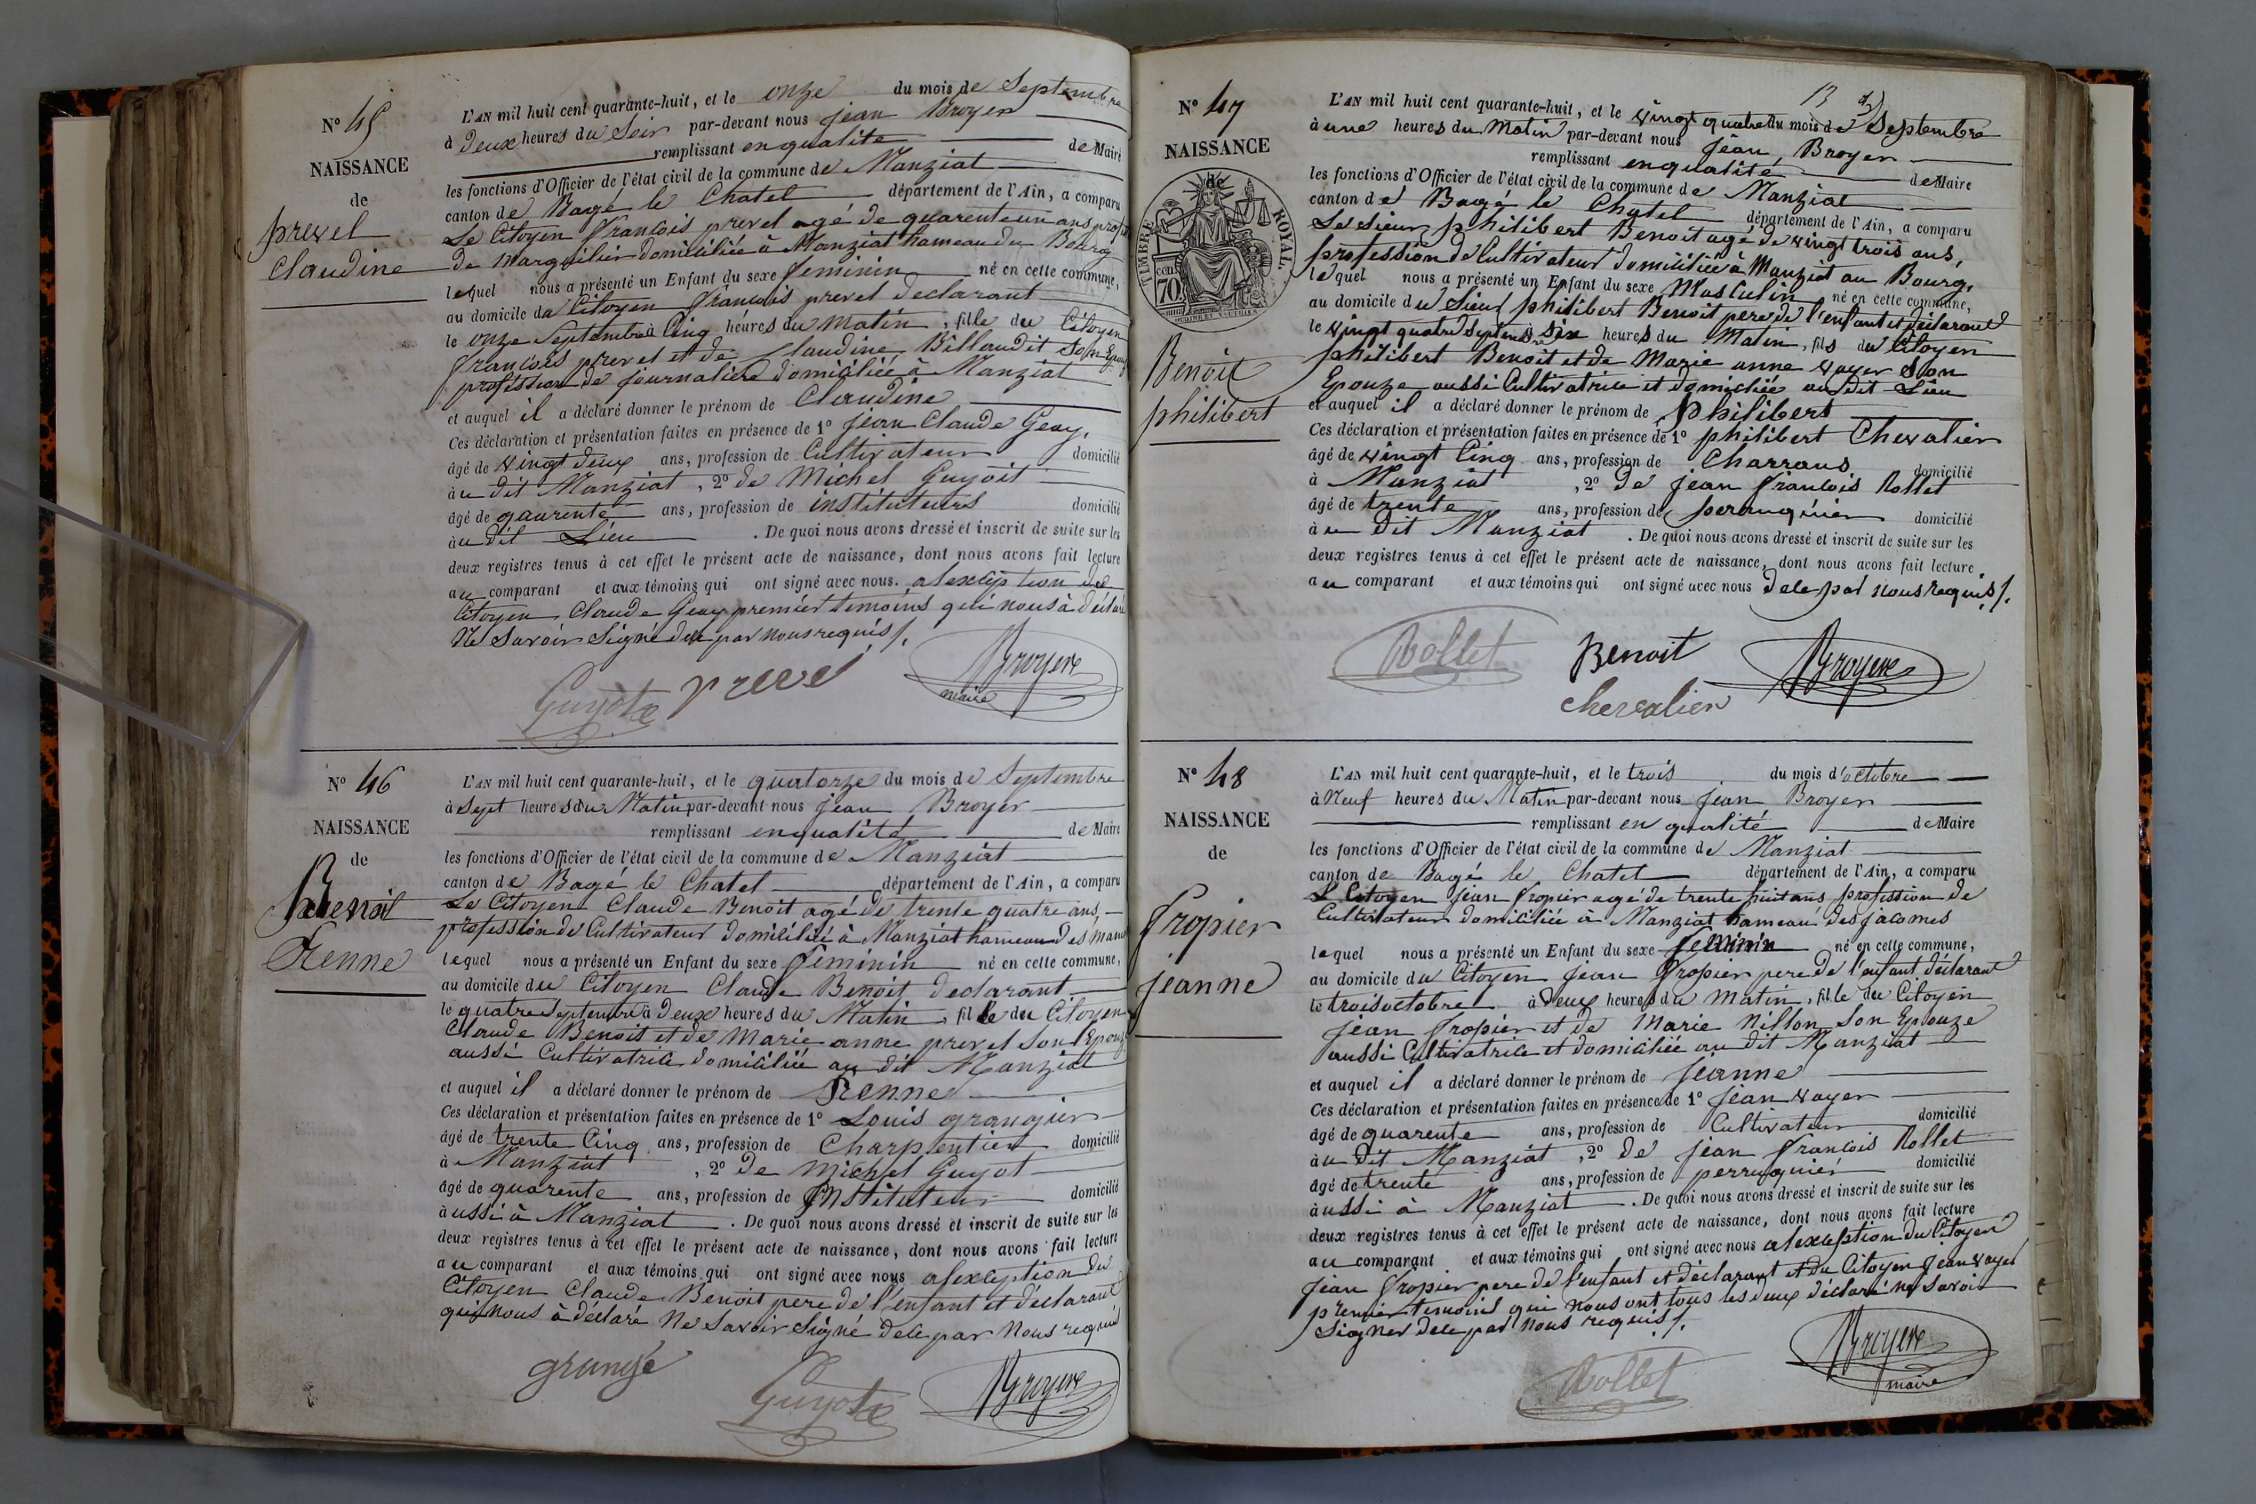 N° 45
NAISSANCE
de
prevel
Claudine
L'AN mil huit cent quarante-huit, et le onze du mois de Septembre
à Deux heures du Soir par-devant nous jean Broyer
remplissant en qualité de Maire
les fonctions d'Officier de l'état civil de la commune de Manziat
canton de Bagé le Chatel département de l'Ain, a comparu
Le Citoyen francois prevel agé de quarente un ans prof
de Marguilier domiciliée à Manziat hameau du Bourg
lequel nous a présenté un Enfant du sexe feminin né en cette commune,
au domicile du Citoyen francois prevel declarant
le onze Septembre à Cinq heures du matin, fille du Citoyen
francois prevel et de Claudine Billaudit Son Epouz
profession de journaliere domiciliée à Manziat
et auquel il a déclaré donner le prénom de Claudine
Ces déclaration et présentation faites en présence de 1° jean Claude Geay,
âgé de vingt deux ans, profession de Cultivateur domicilié
àu dit Manziat, 2° de Michel Guyoit
âgé de qaurente ans, profession de instituteurs domicilié
àu dit Lieu. De quoi nous avons dressé et inscrit de suite sur les
deux registres tenus à cet effet le présent acte de naissance, dont nous avons fait lecture
au comparant et aux témoins qui ont signé avec nous. alexception du
Citoyen Claude Geay premier temoins qui nous à déclaré
Ne Savoir Signé dele par nous requis /.
Guyot prevel Broyer
maire
N° 46
NAISSANCE
de
Benoit
Renne
L'AN mil huit cent quarante-huit, et le quatorze du mois de Septembre
à Sept heures du Matin par-devant nous jean Broyer
remplissant en qualité de Maire
les fonctions d'Officier de l'état civil de la commune de Manziat
canton de Bagé le Chatel département de l'Ain, a comparu
Le Citoyen Claude Benoit agé de trente quatre ans,
profession de Cultivateur domiciliée à Manziat hameau des
lequel nous a présenté un Enfant du sexe féminin né en cette commune,
au domicile du Citoyen Claude Benoit declarant
le quatre Septembre à Deux heures du Matin, fille du Citoyen
Claude Benoit et de Marie anne prevel Son Epouz
aussi Cultivatrice domiciliée au dit Manziat
et auquel il a déclaré donner le prénom de Renne
Ces déclaration et présentation faites en présence de 1° Louis grangier
âgé de trente Cinq ans, profession de Charpentier domicilié
à Manziat, 2° de Michel Guyot
âgé de quarente ans, profession de instituteur domicilié
àussi à Manziat. De quoi nous avons dressé et inscrit de suite sur les
deux registres tenus à cet effet le présent acte de naissance, dont nous avons fait lecture
au comparant et aux témoins qui ont signé avec nous alexception du
Citoyen Claude Benoit pere de l'enfant et déclarant
qui nous à déclaré Ne Savoir Signé dele par Nous requis
grangé Guyot Broyer
13
N° 47
NAISSANCE
de
TIMBRE ROYAL
70
Benoit
philibert
L'AN mil huit cent quarante-huit, et le vingt quatre du mois de Septembre
à une heures du Matin par-devant nous Jean Broyer
remplissant en qualité de Maire
les fonctions d'Officier de l'état civil de la commune de Manziat
canton de Bagé le Chatel département de l'Ain, a comparu
Le Sieur philibert Benoit agé de vingt trois ans,
profession de Cultivateur domiciliée à Manziat au Bourg,
lequel nous a présenté un Enfant du sexe Masculin né en cette commune,
au domicile du Sieur philibert Benoit pere de l'enfant et déclarant
le vingt quatre Septembre à Six heures du Matin, fils du Citoyen
philibert Benoit et de Marie anne vayer Son
Epouze aussi Cultivatrice et domiciliée au dit Lieu
et auquel il a déclaré donner le prénom de philibert
Ces déclaration et présentation faites en présence de 1° philibert Chevalier
âgé de vingt Cinq ans, profession de Charrons domicilié
à Manziat, 2° de jean francois Rollet
âgé de trente ans, profession de peruquier domicilié
àu dit Manziat. De quoi nous avons dressé et inscrit de suite sur les
deux registres tenus à cet effet le présent acte de naissance, dont nous avons fait lecture
au comparant et aux témoins qui ont signé avec nous dele par nous requis /.
Rollet Benoit Broyer
chevalier
N° 48
NAISSANCE
de
fropier
jeanne
L'AN mil huit cent quarante-huit, et le trois du mois d'octobre
à Neuf heures du Matin par-devant nous jean Broyer
remplissant en qualité de Maire
les fonctions d'Officier de l'état civil de la commune de Manziat
canton de Bagé le Chatel département de l'Ain, a comparu
Le Citoyen jean fropier agé de trente huit ans profession de
Cultivateur domiciliée à Manziat hameau des jacomes
lequel nous a présenté un Enfant du sexe feminin né en cette commune,
au domicile du Citoyen jean fropier pere de l'enfant déclarant
le trois octobre à Deux heures du matin, fille du Citoyen
jean fropier et de Marie Nillon Son Epouze
aussi Cultivatrice et domiciliée au dit Manziat
et auquel il a déclaré donner le prénom de jeanne
Ces déclaration et présentation faites en présence de 1° jean vayer
âgé de quarente ans, profession de Cultivateur domicilié
àu dit Manziat, 2° de jean francois Rollet
âgé de trente ans, profession de perruquier domicilié
àussi à Manziat. De quoi nous avons dressé et inscrit de suite sur les
deux registres tenus à cet effet le présent acte de naissance, dont nous avons fait lecture
au comparant et aux témoins qui ont signé avec nous alexception du Citoyen
jean fropier pere de l'enfant et déclarant et du Citoyen jean vayer
premier temoins qui nous ont tous les deux déclaré ne Savoir
Signer dele par nous requis /.
Rollet Broyer
maire